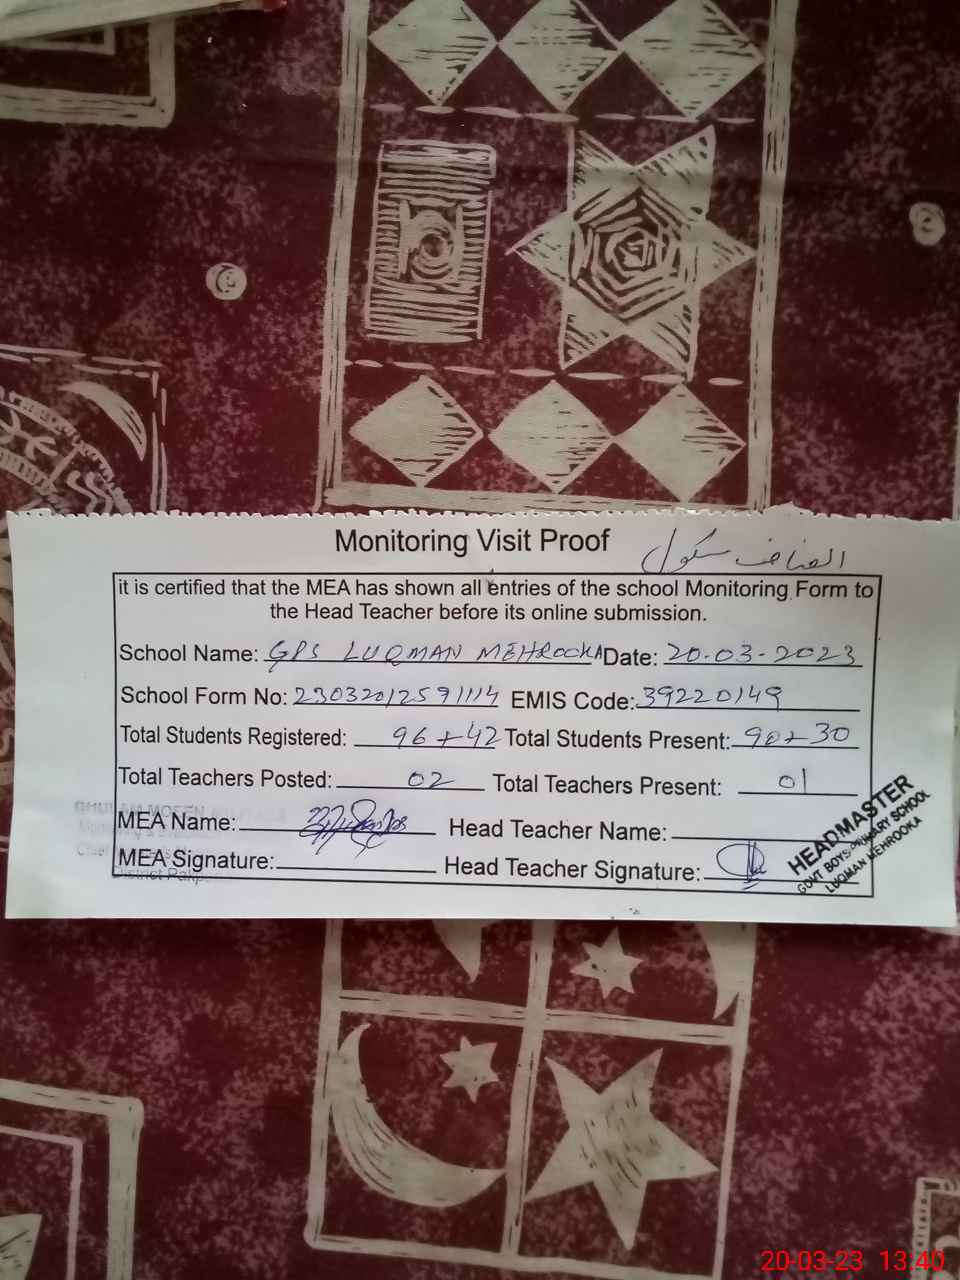 Monitoring Visit Proof انصاف سکول
it is certified that the MEA has shown all entries of the school Monitoring Form to
the Head Teacher before its online submission.
School Name: GPS LUQMAN MEHROOKA Date: 20-03-2023
School Form No: 230320125 91114 EMIS Code: 39220149
Total Students Registered: 96+42 Total Students Present: 90+30
Total Teachers Posted: 02 Total Teachers Present: 01
MEA Name: Head Teacher Name:
MEA Signature: Head Teacher Signature:
HEADMASTER
GOVT BOYS PRIMARY SCHOOL
LUQMAN MEHROOKA
20-03-23 13:40